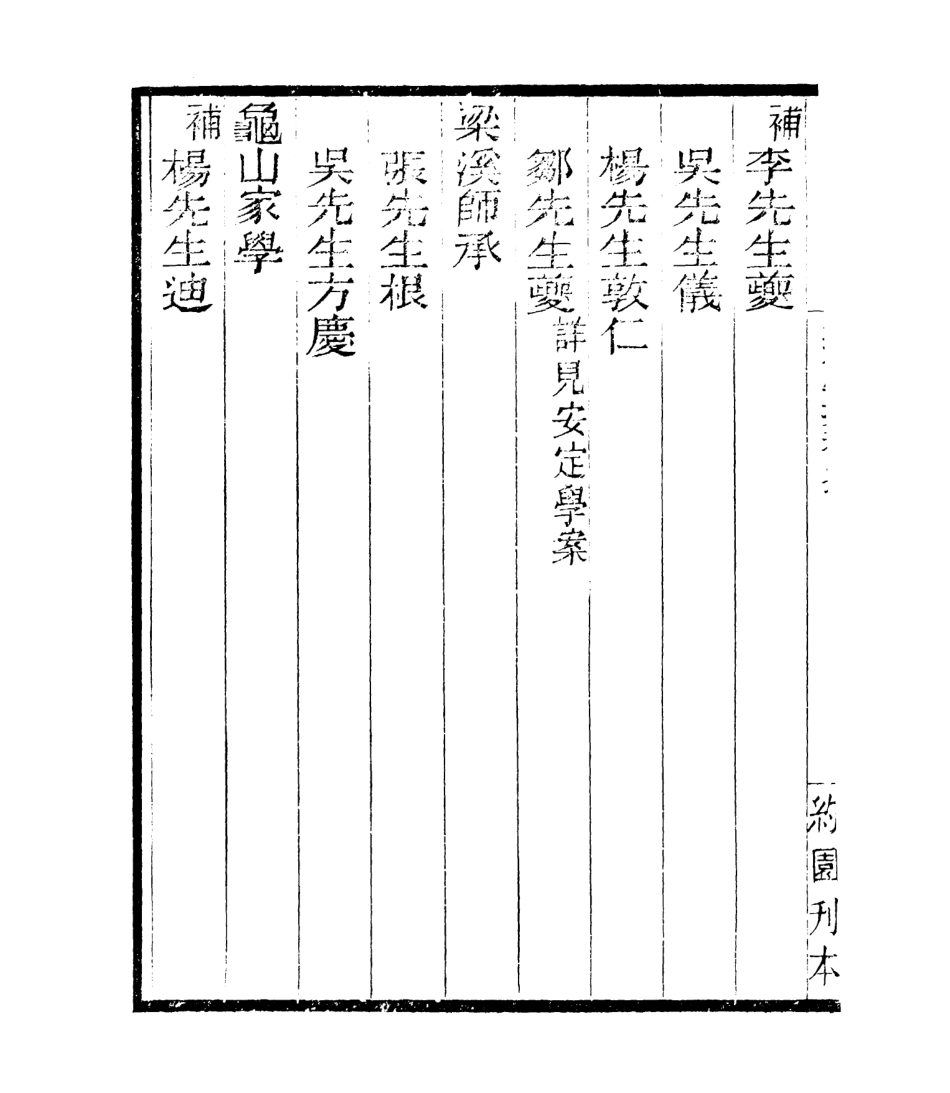 補李先生夔
吳先生儀
楊先生敦仁
鄒先生夔詳見安定學案
梁溪師承
張先生根
吳先生方慶
龜山家學
補楊先生迪
約園刊本